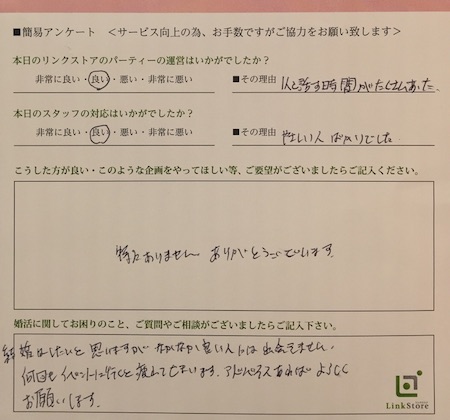 ■簡易アンケート <サービス向上の為、お手数ですがご協力をお願い致します>
本日のリンクストアのパーティーの運営はいかがでしたか？
非常に良い・良い・悪い・非常に悪い ■その理由 人と話す時間がたくさんあった。
本日のスタッフの対応はいかがでしたか？
非常に良い・良い・悪い・非常に悪い ■その理由 優しい人ばかりでした
こうした方が良い・このような企画をやってほしい等、ご要望がございましたらご記入ください。
特にありません ありがとうございます。
婚活に関してお困りのこと、ご質問やご相談がございましたらご記入下さい。
結婚はしたいと思いますが なかなか良い人には出会えません。
何回もイベントに行くと疲れてしまいます。アドバイスあれば よろしく
お願いします。
LinkStore